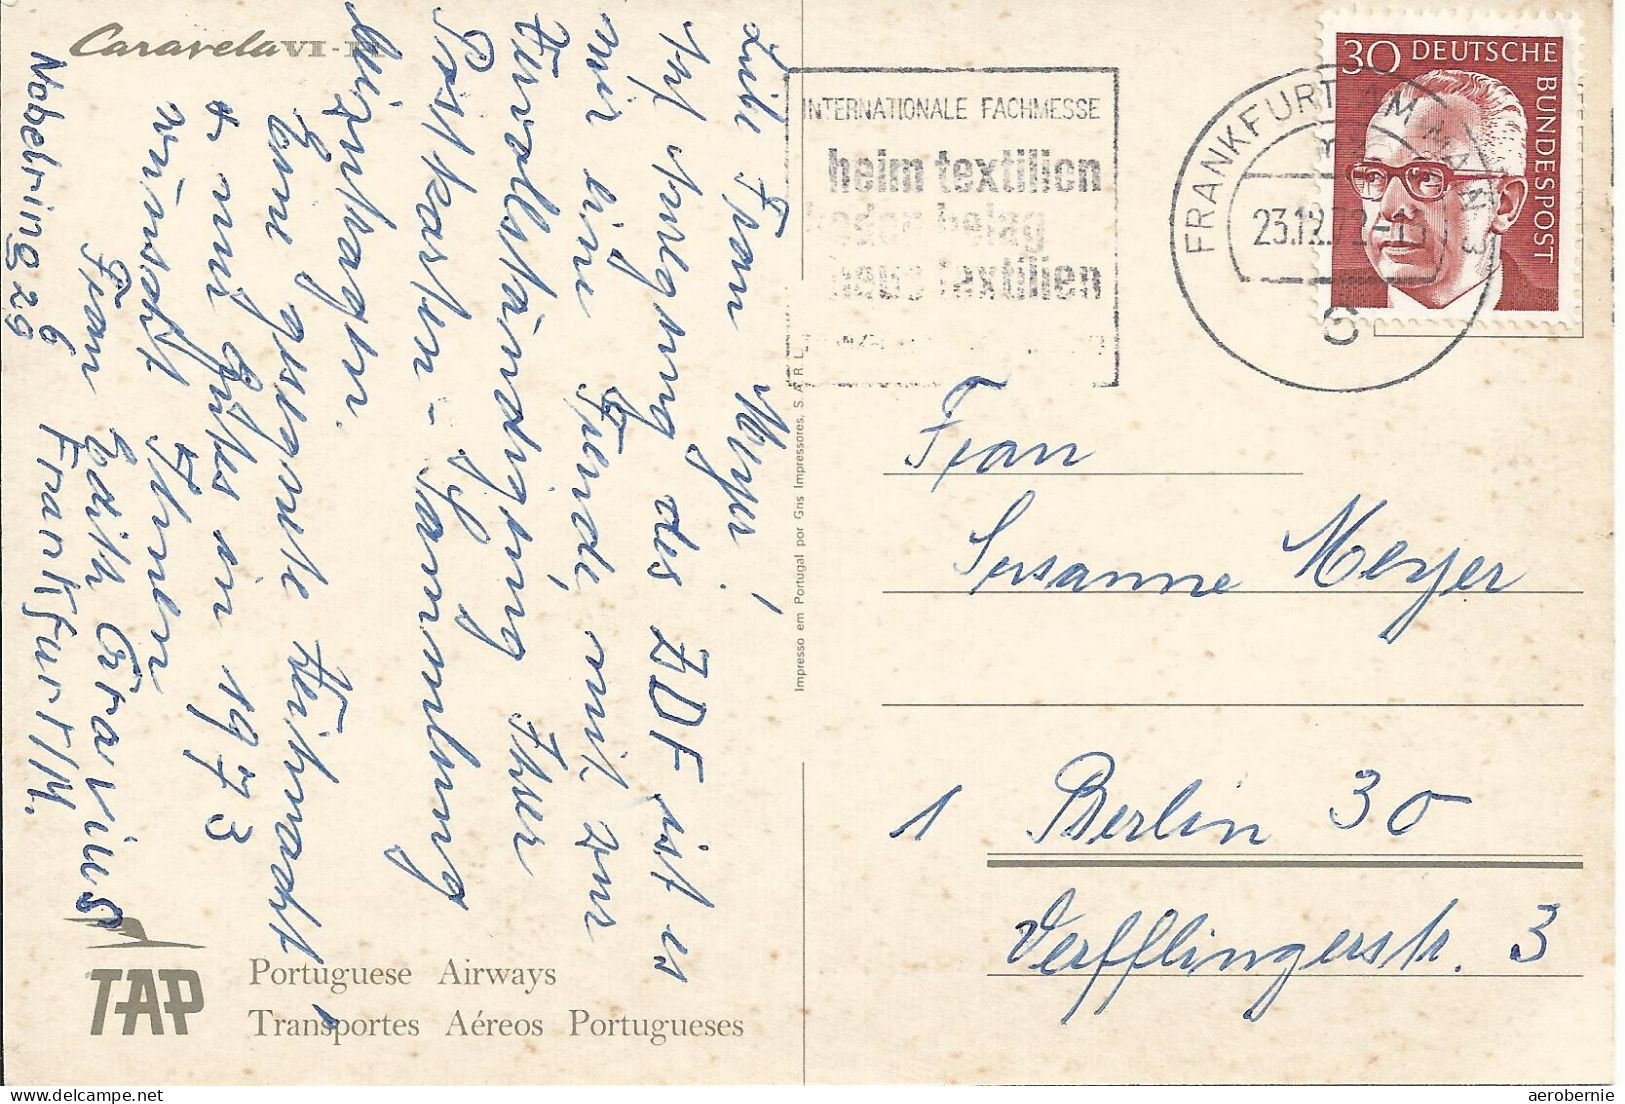 Caravela VI-R
Liebe Frau Meyer!
Auf Anregung des ZDF ist es
mir eine Freude, mit zur
Vervollständigung Ihrer
Postkarten-Sammlung
beizutragen.
Eine gesegnete Weihnacht,
& nur Gutes in 1973
wünscht Ihnen
Frau Edith Gravius
6 Frankfurt/M.
Nobelring 29
TAP
Portuguese Airways
Transportes Aéreos Portugueses
Impresso em Portugal por Gris Impressores, S.A.R.L.
INTERNATIONALE FACHMESSE
heim textilien
boden belag
haus textilien
FRANKFURT AM MAIN 3
23.12.72
G
30 DEUTSCHE
BUNDESPOST
Frau
Susanne Meyer
1 Berlin 30
Derfflingerstr. 3
aerobernie